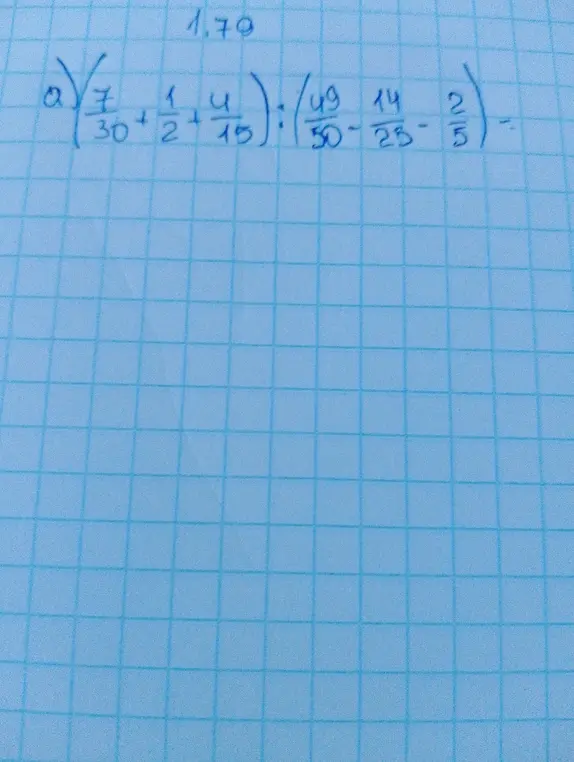 1.79
а) (7/30 + 1/2 + 4/15) : (49/50 - 14/25 - 2/5) =